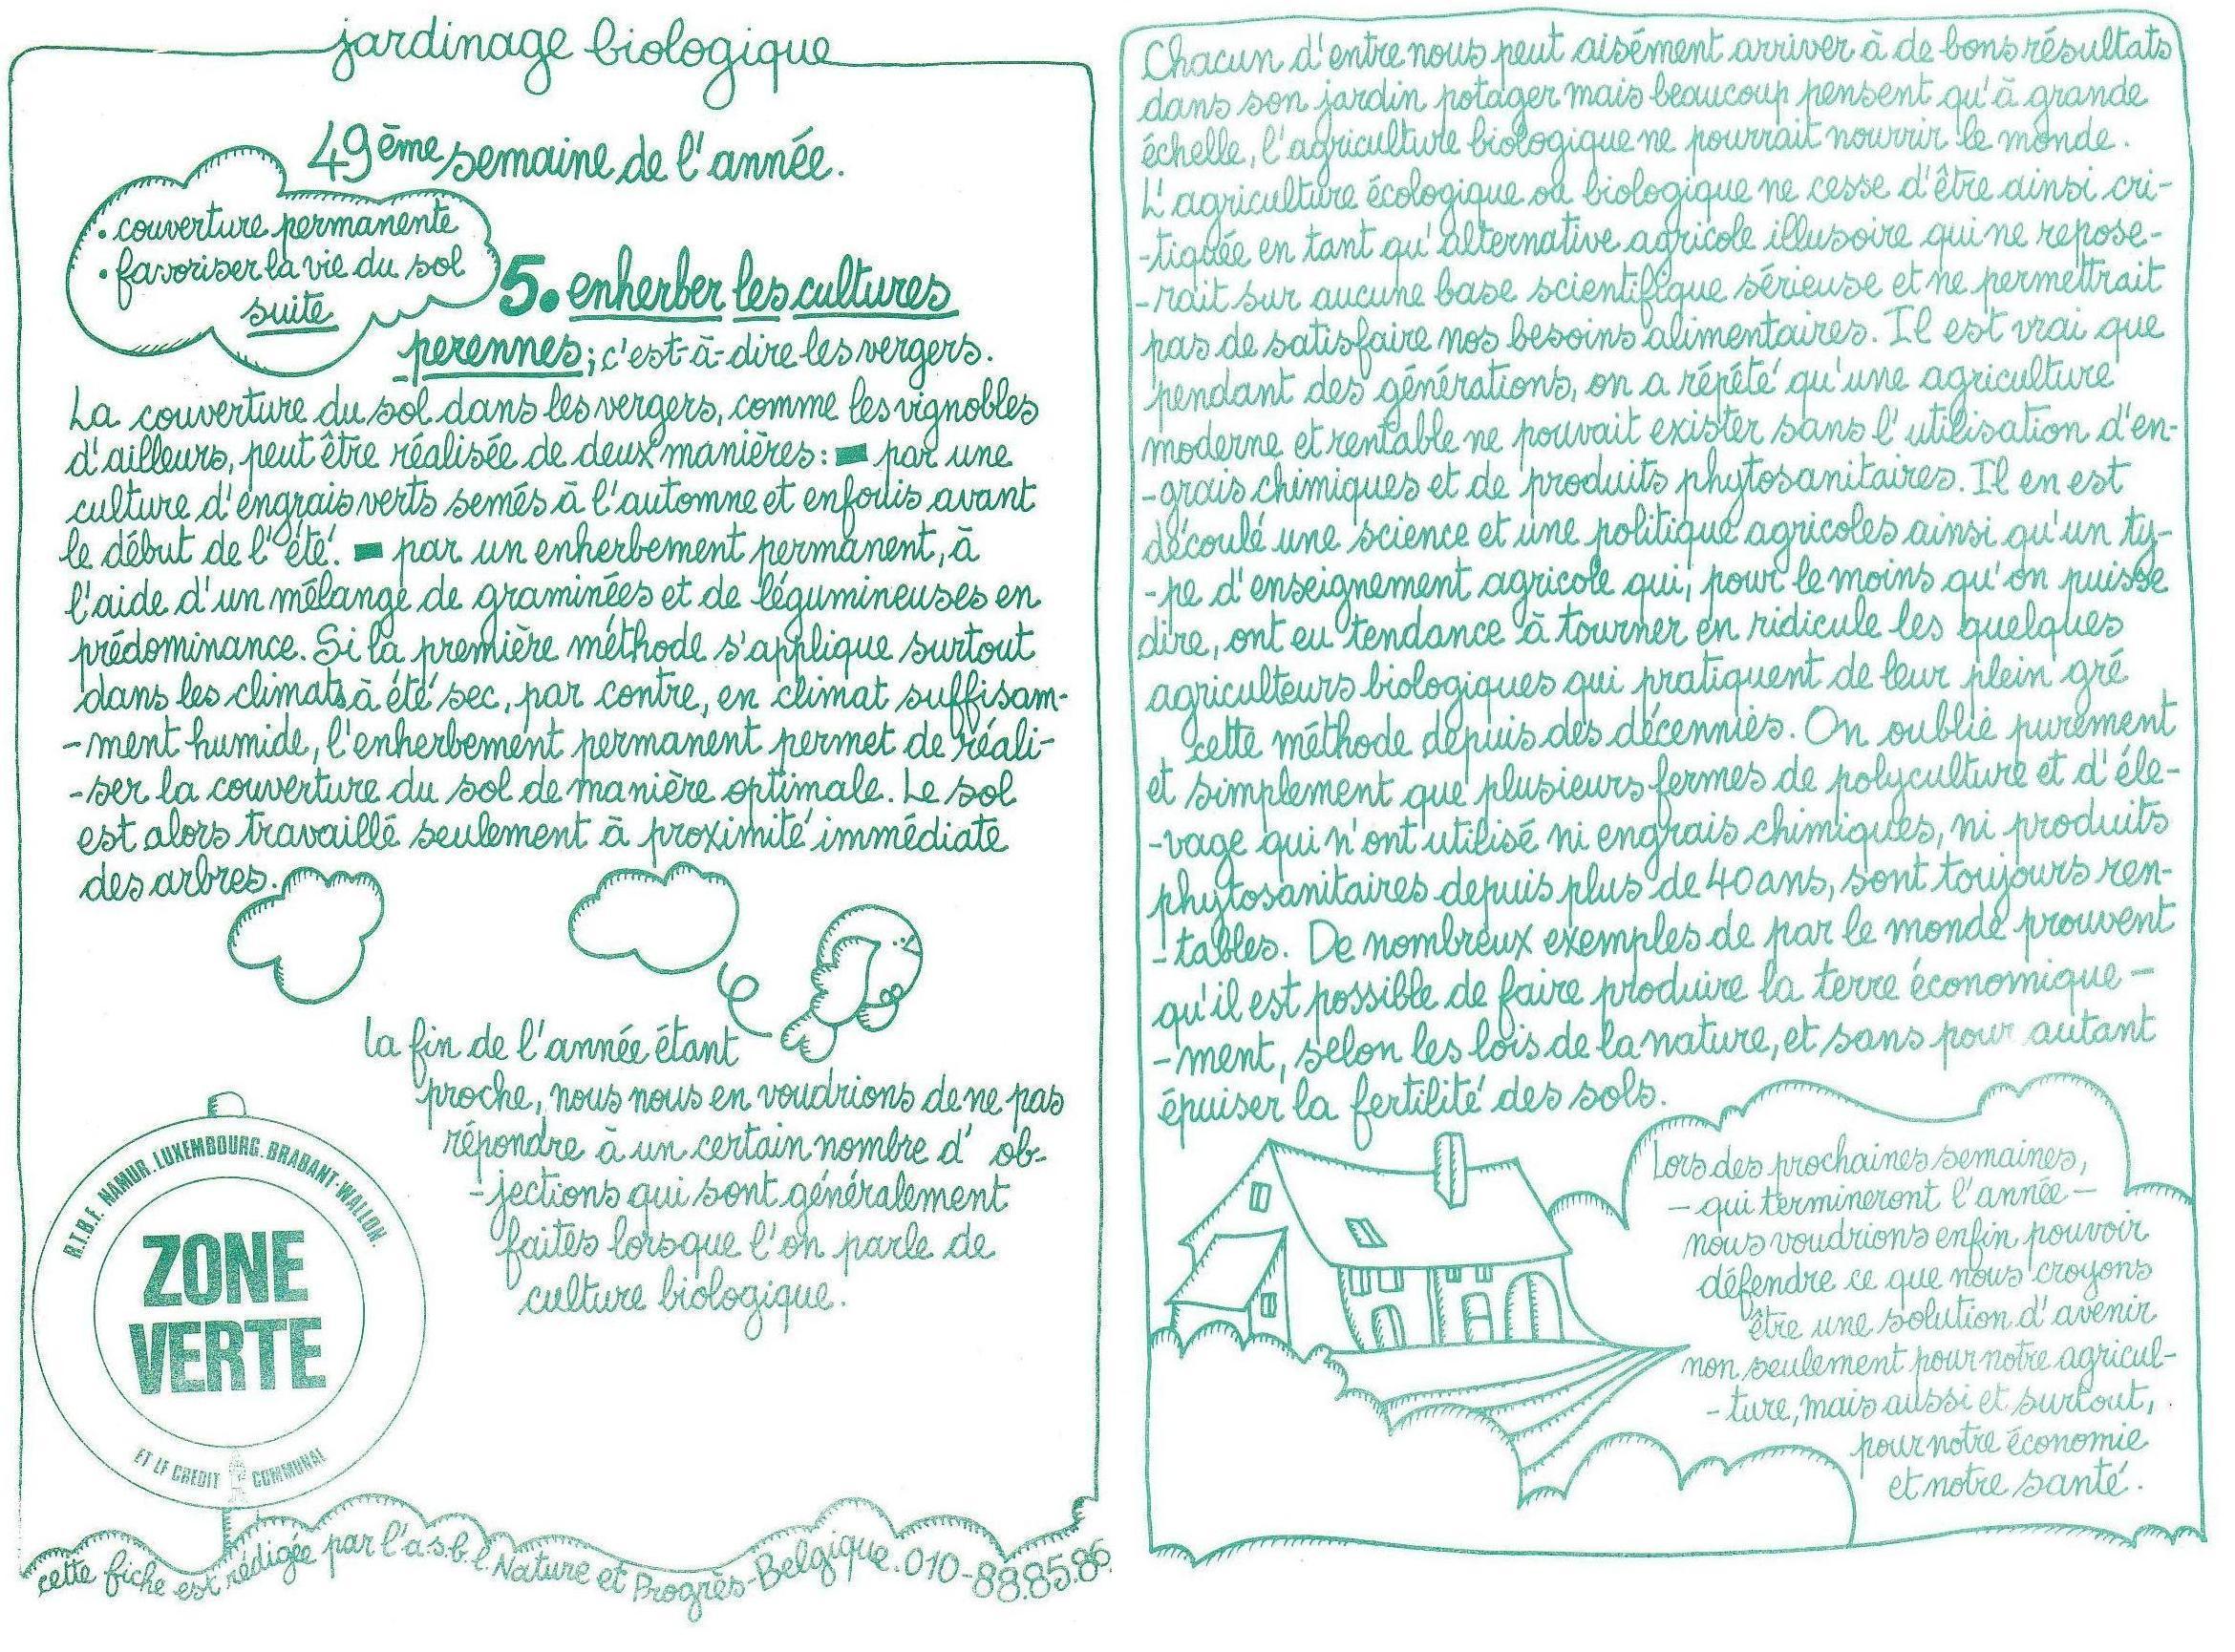 jardinage biologique
49ème semaine de l'année.
• couverture permanente
• favoriser la vie du sol
suite
5. enherber les cultures
-perennes; c'est-à-dire les vergers.
La couverture du sol dans les vergers, comme les vignobles
d'ailleurs, peut être réalisée de deux manières: ▬ par une
culture d'engrais verts semés à l'automne et enfouis avant
le début de l'été. ▬ par un enherbement permanent, à
l'aide d'un mélange de graminées et de légumineuses en
prédominance. Si la première méthode s'applique surtout
dans les climats à été sec, par contre, en climat suffisam-
-ment humide, l'enherbement permanent permet de réali-
-ser la couverture du sol de manière optimale. Le sol
est alors travaillé seulement à proximité immédiate
des arbres.
la fin de l'année étant
proche, nous nous en voudrions de ne pas
répondre à un certain nombre d' ob-
-jections qui sont généralement
faites lorsque l'on parle de
culture biologique.
R.T.B.F. NAMUR. LUXEMBOURG. BRABANT-WALLON.
ZONE
VERTE
ET LE CREDIT COMMUNAL
cette fiche est rédigée par l'a.s.b.l. Nature et Progrès-Belgique. 010-88.85.86
Chacun d'entre nous peut aisément arriver à de bons résultats
dans son jardin potager mais beaucoup pensent qu'à grande
échelle, l'agriculture biologique ne pourrait nourrir le monde.
L'agriculture écologique ou biologique ne cesse d'être ainsi cri-
-tiquée en tant qu'alternative agricole illusoire qui ne repose-
-rait sur aucune base scientifique sérieuse et ne permettrait
pas de satisfaire nos besoins alimentaires. Il est vrai que
pendant des générations, on a répété qu'une agriculture
moderne et rentable ne pouvait exister sans l'utilisation d'en-
-grais chimiques et de produits phytosanitaires. Il en est
découlé une science et une politique agricoles ainsi qu'un ty-
-pe d'enseignement agricole qui, pour le moins qu'on puisse
dire, ont eu tendance à tourner en ridicule les quelques
agriculteurs biologiques qui pratiquent de leur plein gré
cette méthode depuis des décennies. On oublie purement
et simplement que plusieurs fermes de polyculture et d'éle-
-vage qui n'ont utilisé ni engrais chimiques, ni produits
phytosanitaires depuis plus de 40 ans, sont toujours ren-
-tables. De nombreux exemples de par le monde prouvent
qu'il est possible de faire produire la terre économique-
-ment, selon les lois de la nature, et sans pour autant
épuiser la fertilité des sols.
Lors des prochaines semaines,
- qui termineront l'année -
nous voudrions enfin pouvoir
défendre ce que nous croyons
être une solution d'avenir
non seulement pour notre agricul-
-ture, mais aussi et surtout,
pour notre économie
et notre santé.